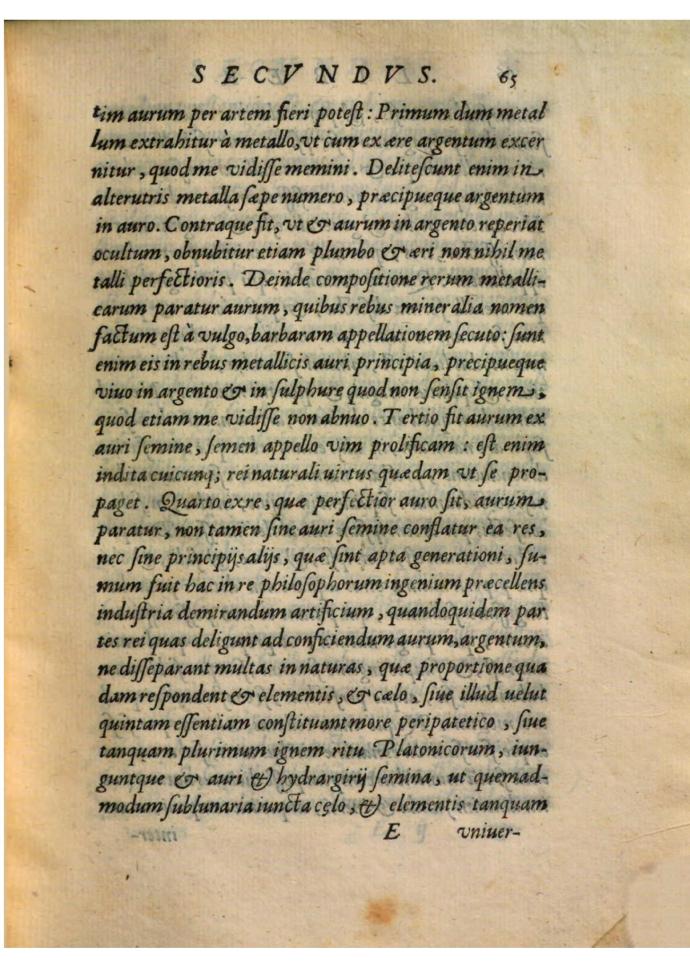 SECVNDVS. 65
tim aurum per artem fieri potest : Primum dum metal
lum extrahitur à metallo, vt cum ex ære argentum excer
nitur, quod me vidisse memini. Delitescunt enim in
alterutris metalla sæpe numero, præcipueque argentum
in auro. Contraque fit, vt & aurum in argento reperiat
ocultum, obnubitur etiam plumbo & æri non nihil me
talli perfectioris. Deinde compositione rerum metalli-
carum paratur aurum, quibus rebus mineralia nomen
factum est à vulgo, barbaram appellationem secuto: sunt
enim eis in rebus metallicis auri principia, precipueque
viuo in argento & in sulphure quod non sensit ignem,
quod etiam me vidisse non abnuo. Tertio fit aurum ex
auri semine, semen appello vim prolificam : est enim
indita cuicunq; rei naturali uirtus quædam vt se pro-
paget. Quarto ex re, quæ perfectior auro sit, aurum
paratur, non tamen sine auri semine conflatur ea res,
nec sine principijs alijs, quæ sint apta generationi, su-
mum fuit hac in re philosophorum ingenium præcellens
industria demirandum artificium, quandoquidem par
tes rei quas deligunt ad conficiendum aurum, argentum,
ne disseparant multas in naturas, quæ proportione qua
dam respondent & elementis, & cælo, siue illud uelut
quintam essentiam constituant more peripatetico, siue
tanquam plurimum ignem ritu Platonicorum, iun-
guntque & auri & hydrargirij semina, ut quemad-
modum sublunaria iuncta cęlo, & elementis tanquam
E vniuer-